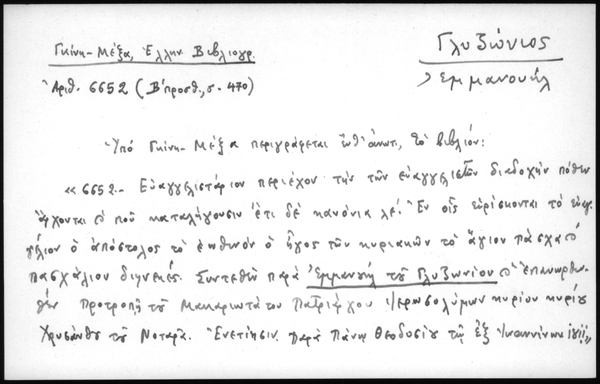 Γκίνη-Μέξα, Ἑλλην. Βιβλιογρ.
Γλυζώνιος
Ἐμμανουήλ
Ἀριθ. 6652 (Β' προσθ., σ. 470)
Ὑπό Γκίνη-Μέξα περιγράφεται ὡς ἄνω, τό βιβλίον:
« 6652.- Εὐαγγελιστάριον περιέχον τήν τῶν εὐαγγελιστῶν διαδοχήν πόθεν
ἄρχονται καί ποῦ καταλήγουσιν ἔτι δέ κανόνια λέ. Ἐν οἷς εὑρίσκονται τό εὐαγ-
γέλιον ὁ ἀπόστολος τό ἑωθινόν ὁ ἦχος τῶν κυριακῶν τό ἅγιον πάσχα καί
πασχάλιον διηνεκές. Συντεθέν παρά Ἐμμανουήλ τοῦ Γλυζωνίου καί ἐπανορθω-
θέν Προτροπῇ τοῦ Μακαριωτάτου Πατριάρχου Ἱεροσολύμων κυρίου κυρίου
Χρυσάνθου τοῦ Νοταρᾶ. Ἐνετίησιν παρά Πάνῳ Θεοδοσίου τῷ ἐξ Ἰωαννίνων